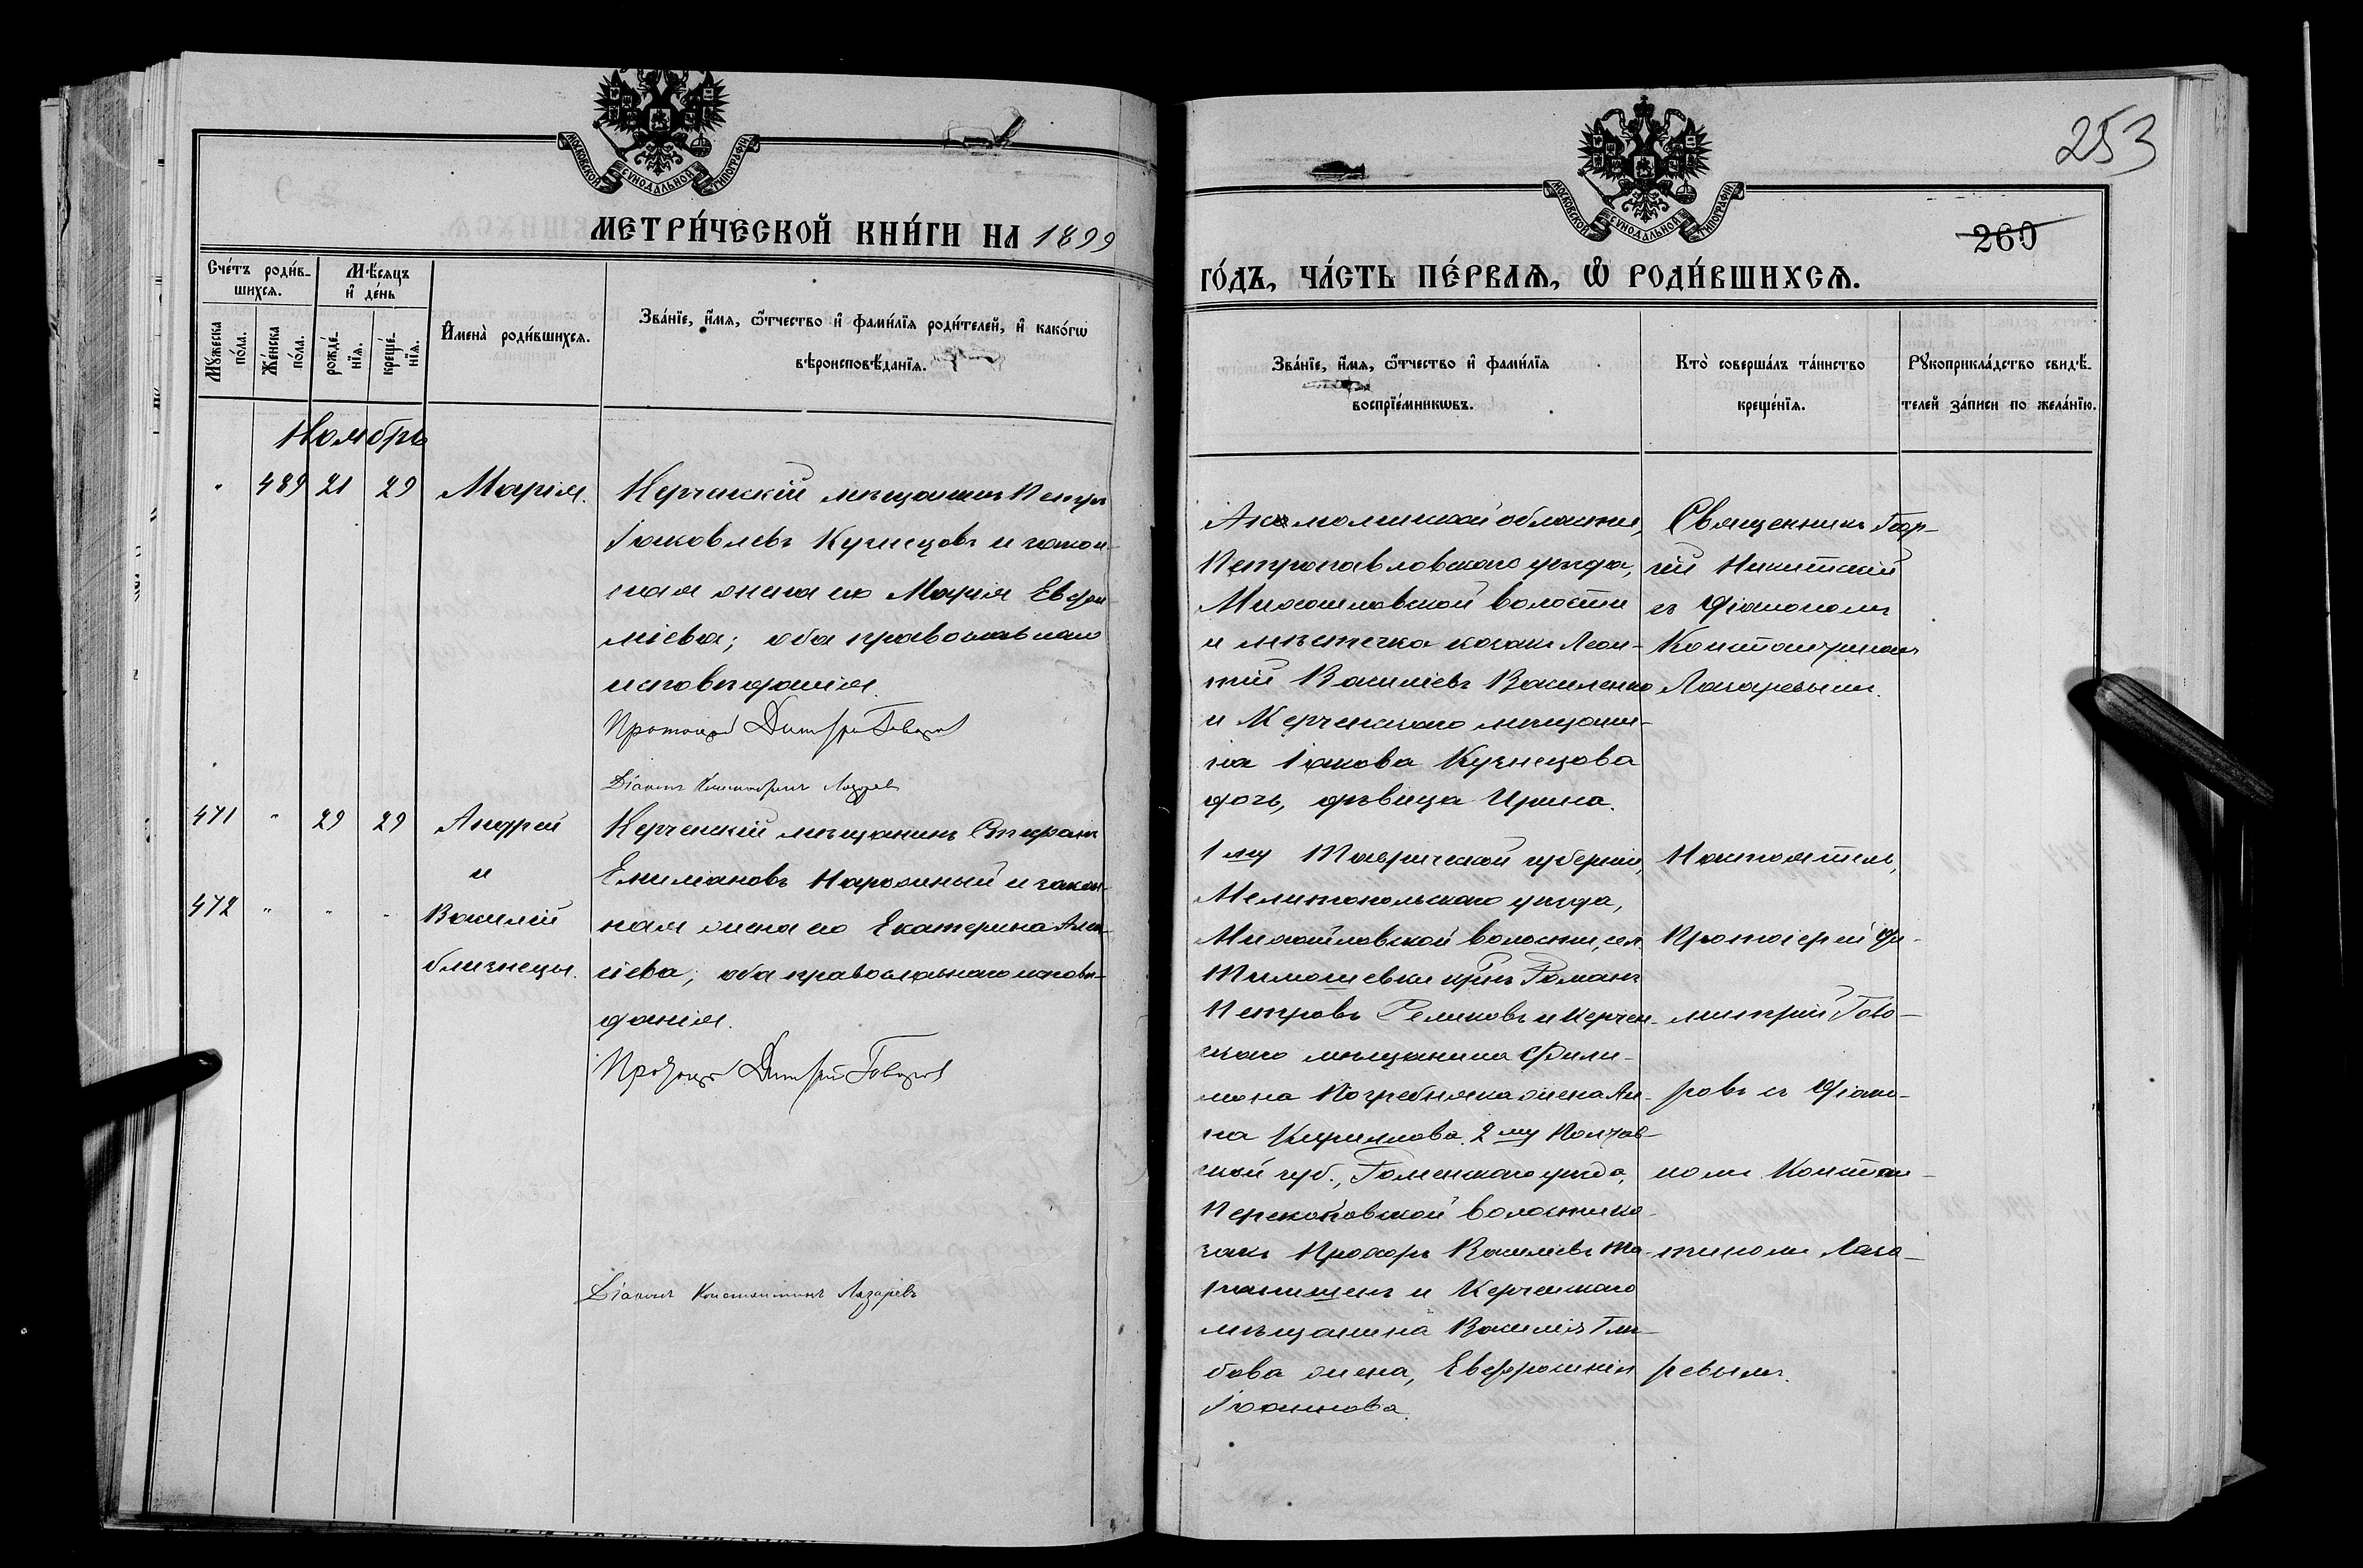 МОСКОВСКОЙ СѴНОДАЛЬНОЙ ТИПОГРАФІИ
МЕТРИ́ЧЕСКОЙ КНИ́ГИ НА 1899
Сче́тъ роди́в-
шихсѧ.
Мѣ́сѧцъ
и҆ де́нь
Мꙋ́жеска
по́ла.
Же́нска
по́ла.
рожде́-
нїѧ.
креще́-
нїѧ.
И҆мена̀ роди́вшихсѧ.
Зва́нїе, и҆́мѧ, ѻ҆́тчество и҆ фами́лїѧ роди́телей, и҆ како́гѡ
вѣроисповѣ́данїѧ.
Ноябрь
" 489 21 29 Марія.
Керченскій мѣщанинъ Петръ
Іаковлевъ Кузнецовъ и закон-
ная жена его Марія Евфи-
міева; оба православнаго
исповѣданія.
Протоіерей Димитрій Говоровъ
Діаконъ Константинъ Лазаревъ
471 " 29 29 Андрей
и
472 " " " Василій
близнецы.
Керченскій мѣщанинъ
Емиліановъ Нарожный и закон-
ная жена его Екатерина Алек-
сіева; оба православнаго исповѣ-
данія.
Протоіерей Димитрій Говоровъ
Діаконъ Константинъ Лазаревъ
253
МОСКОВСКОЙ СѴНОДАЛЬНОЙ ТИПОГРАФІИ
260
ГО́ДЪ, ЧА́СТЬ ПЕ́РВАѦ, Ѡ҆ РОДИ́ВШИХСѦ.
Зва́нїе, и҆́мѧ, ѻ҆́тчество и҆ фами́лїѧ
воспрїе́мникѡвъ.
Кто̀ соверша́лъ та́инство
креще́нїѧ.
Рꙋкоприкла́дство свидѣ́-
телей за́писи по жела́нїю.
Акмолинской области,
Петропавловскаго уѣзда,
Михайловской волости
и мѣстечка козакъ Леон-
тій Василіевъ Василенко
и Керченскаго мѣщани-
на Іакова Кузнецова
дочь, дѣвица Ирина.
Священникъ Геор-
гій Никитскій
съ Діакономъ
Константиномъ
Лазаревымъ.
1му Таврической губерніи,
Мелитопольскаго уѣзда,
Михайловской волости, сел.
Тимошевки крѣс. Романъ
Петровъ Реликовъ и Керчен-
скаго мѣщанина Фили-
мона Погребняка жена Ан-
на Кириллова. 2му Полтав-
ской губ., Роменскаго уѣзда,
Перекоповской волости ко-
закъ Прохоръ Василіевъ
и Керченскаго
мѣщанина Василія Глѣ-
бова жена, Евфросинія
Іоаннова.
Настоятель,
Протоіерей Ди-
митрій Гово-
ровъ съ Діако-
номъ Констан-
тиномъ Лаза-
ревымъ.